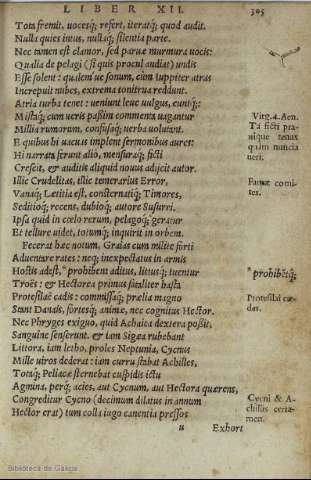 LIBER XII.
395
Tota fremit, uocesq; refert, iteratq; quod audit.
Nulla quies intus, nullaq; silentia parte.
Nec tamen est clamor, sed paruæ murmura uocis:
Qualia de pelagi (si quis procul audiat) undis
Esse solent: qualem´ue sonum, cùm Iuppiter atras
Increpuit nubes, extrema tonitrua reddunt.
Atria turba tenet: ueniunt leue uulgus, euntq;:
Mistaq; cum ueris passim commenta uagantur
Millia rumorum, confusaq; uerba uolutant.
E quibus hi uacuas implent sermonibus aures:
Hi narrata ferunt aliò, mensuraq; ficti
Crescit, & auditis aliquid nouus adijcit autor.
Illic Crudelitas, illic temerarius Error,
Vanaq; Lætitia est, consternatiq; Timores,
Seditioq; recens, dubioq; autore Susurri.
Ipsa quid in cœlo rerum, pelagoq; geratur
Et tellure uidet, totumq; inquirit in orbem.
Fecerat hæc notum, Graias cum milite forti
Aduentare rates: neq; inexpectatus in armis
Hostis adest, " prohibent aditus, littusq; tuentur
Troës: & Hectorea primus fataliter hasta
Protesilaë cadis: commissaq; prælia magno
Stant Danais, fortesq; animæ, nec cognitus Hector.
Nec Phryges exiguo, quid Achaica dextera possit,
Sanguine senserunt. & iam Sigæa rubebant
Littora, iam letho, proles Neptunia, Cycnus
Mille uiros dederat: iam curru stabat Achilles,
Totaq; Peliacæ sternebat cuspidis ictu
Agmina, perq; acies, aut Cycnum, aut Hectora quærens,
Congreditur Cycno (decimum dilatus in annum
Hector erat) tum colla iugo canentia pressos
u
Exhort
Virg. 4. Aen.
Tā ficti pra-
uique tenax
quàm nuncia
ueri.
Famæ comi-
tes.
" prohibētq;
Protesilai cæ-
des.
Cycni & A-
chillis certa-
men.
Biblioteca de Galicia